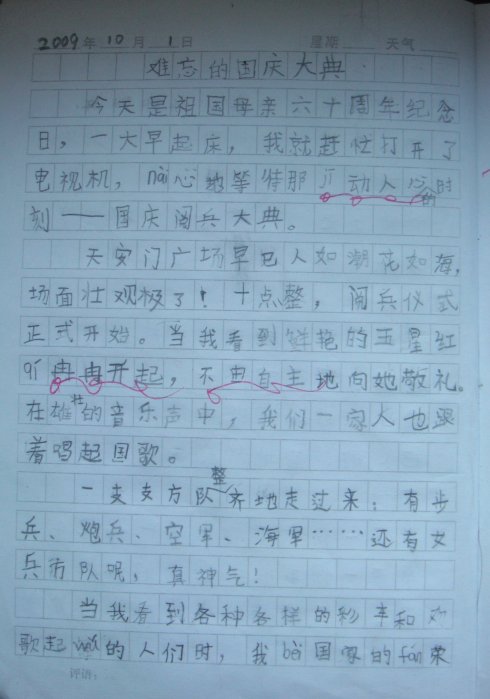 2009年10月1日 星期 天气
难忘的国庆大典
今天是祖国母亲六十周年纪念
日，一大早起床，我就赶忙打开了
电视机，nài心地等待那jī动人心的时
刻——国庆阅兵大典。
天安门广场早已人如潮花如海，
场面壮观极了！十点整，阅兵仪式
正式开始。当我看到鲜艳的五星红
冉冉升起，不由自主地向她敬礼。
在雄壮的音乐声中，我们一家人也跟
着唱起国歌。
一支支方队整齐地走过来：有步
兵、炮兵、空军、海军……还有女
兵方队呢，真神气！
当我看到各种各样的彩车和
歌起wǔ的人们时，我bèi国家的fán荣
评语：